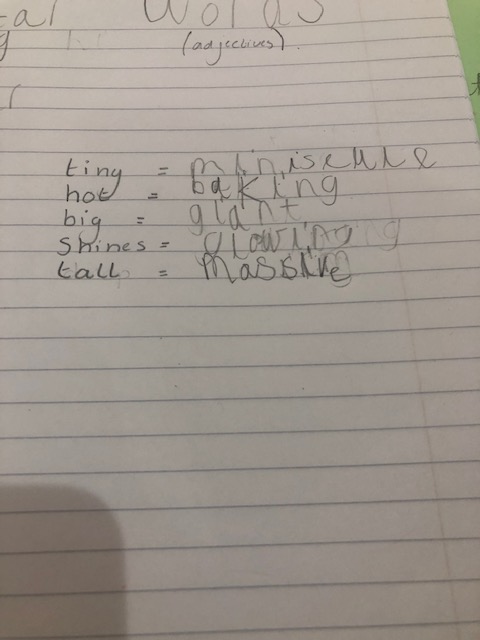 Words
(adjectives)
tiny = miniscule
hot = baking
big = giant
shines = glowing
tall = massive